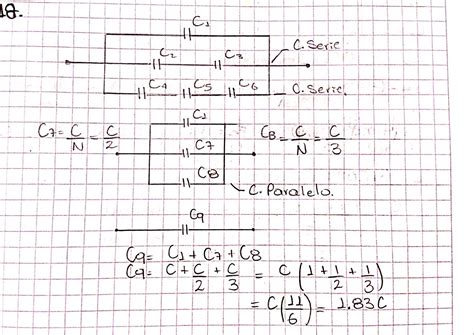 18.
C1
C2 C3 C. Serie
C4 C5 C6 C. Serie.
C7 = C/N = C/2
C1
C7
C8
C8 = C/N = C/3
C. Paralelo.
C9
C9 = C1 + C7 + C8
C9 = C + C/2 + C/3 = C (1 + 1/2 + 1/3)
= C (11/6) = 1.83C